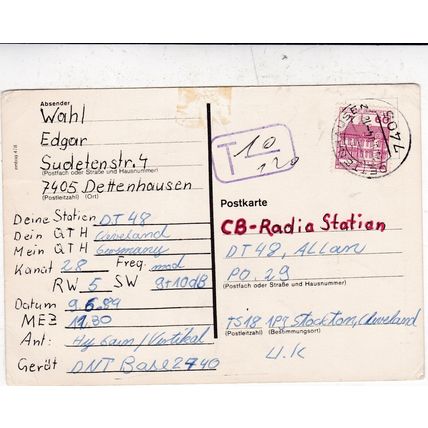 Absender
Wahl
Edgar
Sudetenstr. 4
(Postfach oder Straße und Hausnummer)
7405 Dettenhausen
(Postleitzahl) (Ort)
Deine Station DT 48
Dein QTH Cleveland
Mein QTH Germany
Kanal 28 Freq. mid
RW 5 SW 9+10dB
Datum 9.6.89
MEZ 11.30
Ant: Hy Gain / Vertikal
Gerät DNT Base 2740
T 10
120
60
7405
DETTENHAUSEN
Postkarte
CB-Radio Station
DT 48, Allan
PO. 29
(Postfach oder Straße und Hausnummer)
TS18 1PG Stockton, Cleveland
(Postleitzahl) (Bestimmungsort)
U.K